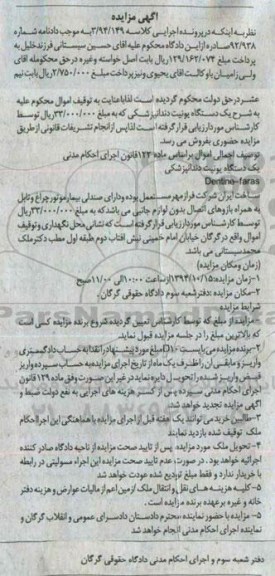 آگهی مزایده
نظر به اینکه در پرونده اجرایی کلاسه ۳/۹۴/۱۴۹ به موجب دادنامه شماره
۹۲/۹۳۸ صادره از این دادگاه محکوم علیه آقای حسین سیستانی فرزند خلیل به
پرداخت مبلغ ۱۲۹/۱۶۳/۰۷۴ ریال بابت اصل خواسته و غیره در حق محکوم له آقای
ولی زمیان با وکالت آقای یحیوی و نیز پرداخت مبلغ ۲/۷۵۰/۰۰۰ ریال بابت نیم
عشر در حق دولت محکوم گردیده است لذا با عنایت به توقیف اموال محکوم علیه
به شرح یک دستگاه یونیت دندانپزشکی که به مبلغ ۳۳/۰۰۰/۰۰۰ ریال توسط
کارشناس مورد ارزیابی قرار گرفته است لذا پس از انجام تشریفات قانونی از طریق
مزایده حضوری بفروش می رسد.
توصیف اجمالی اموال بر اساس ماده ۱۲۳ قانون اجرای احکام مدنی
یک دستگاه یونیت دندانپزشکی
Dentino-faras
ساخت ایران شرکت فراز مهر مستعمل بوده و دارای صندلی بیمار موتور چراغ و تابل
به همراه بازوهای اتصال بدون لوازم جانبی می باشد که به مبلغ ۳۳/۰۰۰/۰۰۰ ریال
توسط کارشناس مورد ارزیابی قرار گرفته است که نشانی محل نگهداری و توقیف
اموال واقع در گرگان خیابان امام خمینی نبش آفتاب دوم طبقه اول مطب دکتر ملک
محمد سیستانی می باشد.
(زمان و مکان مزایده)
۱-زمان مزایده: ۱۳۹۴/۱۰/۱۵ از ساعت ۱۰:۰۰ الی ۱۱/۰۰ صبح
۲-مکان مزایده: دفتر شعبه سوم دادگاه حقوقی گرگان
شرایط مزایده
۱-مزایده از مبلغ که توسط کارشناس تعیین گردیده شروع برنده مزایده کسی است
که بالاترین مبلغ را در جلسه مزایده قبول نماید.
۲-برنده مزایده می بایست ۱۰٪ مبلغ مورد پیشنهاد را نقدا به حساب دادگستری
واریز و مابقی آن را ظرف یک ماه از تاریخ اجرای مزایده به حساب سپرده واریز
و فیش واریز شده را تحویل دایره نماید در غیر این صورت وفق ماده ۱۲۹ قانون
اجرای احکام مدنی سپرده پس از کسر هزینه های اجرایی به نفع دولت ضبط و
آگهی مزایده تجدید خواهد شد.
۳-طالبین خرید می توانند یک هفته قبل از اجرای مزایده با هماهنگی این اجرا احکام
ملک توقیف شده بازدید نمایند
۴-تحویل ملک مورد مزایده پس از تایید صحت مزایده از ناحیه دادگاه صادر کننده
اجرائیه خواهد بود. در صورت عدم تایید صحت مزایده این اجراء مسولیتی در رابطه
با خریدار ندارد و فقط مبلغ تودیع شده عودت خواهد شد
۵-کلیه هزینه های نقل و انتقال ملک از مین اعم از مالیات عوارض و هزینه دفتر
خانه و غیره بر عهده برنده مزایده است.
۵-مزایده با حضور نماینده محترم دادستان دادسرای عمومی و انقلاب گرگان و
نماینده اجرای احکام مدنی انجام خواهد شد
دفتر شعبه سوم و اجرای احکام مدنی دادگاه حقوقی گرگان